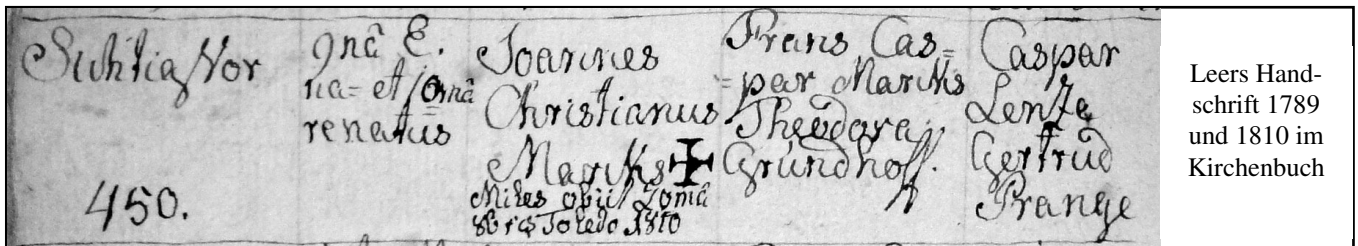 Sichtig Vor
450.
9nâ E.
na= et
renatus
Joannes
Christianus
✠
Miles obiit
8bris Toledo 1810
Frans Cas=
=par
Theodora
Gründhoff.
Caspar
Lenze
Gertrud
Prange
Leers Hand-
schrift 1789
und 1810 im
Kirchenbuch